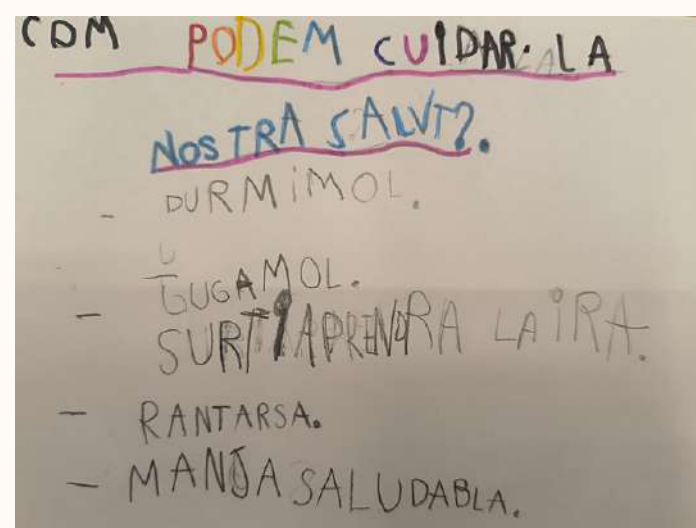 COM PODEM CUIDAR LA
NOSTRA SALUT?.
- DURMIMOL.
- GUGAMOL.
SURTIAPRENDRA LAIRA.
- RANTARSA.
- MANJA SALUDABLA.